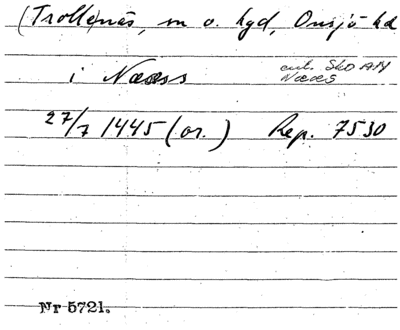 (Trollenäs, m o. hgd, Onsjö hd
i Næss
enl. SkO AIV
Næs
27/7 1445 (or.) Rep. 7530
Nr 5721.